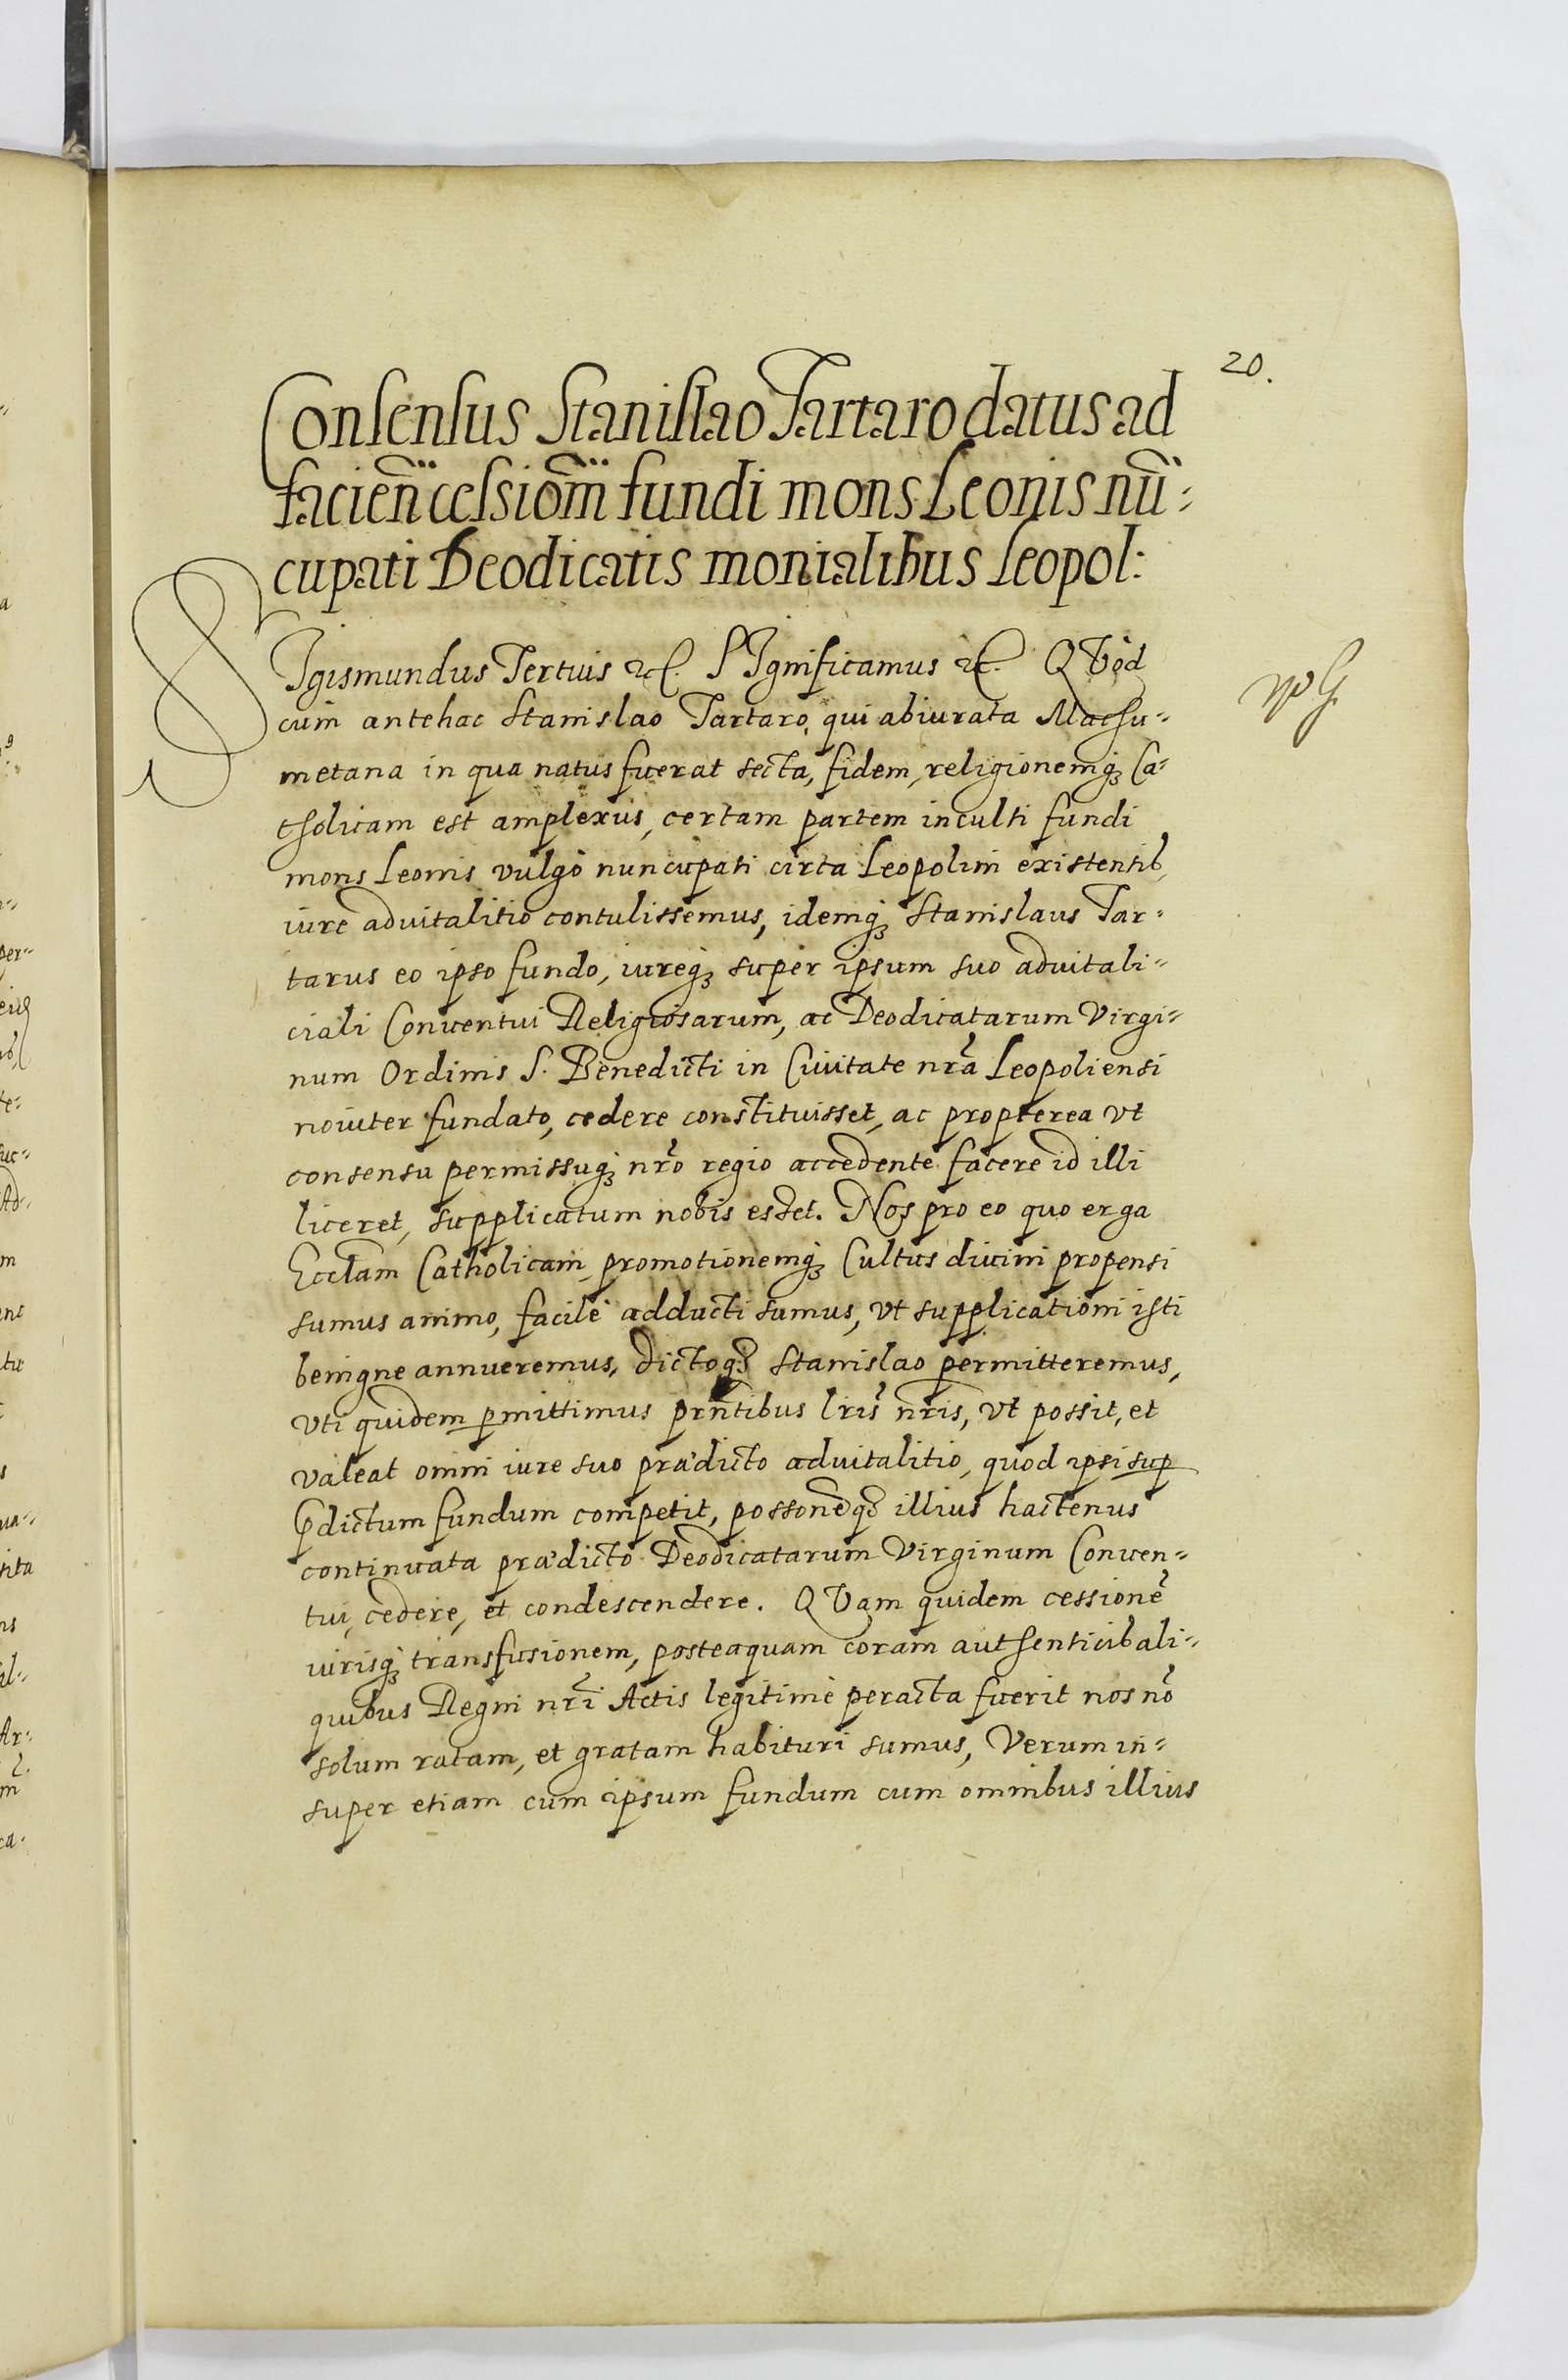 20.
Consensus Stanislao Tartaro datus ad
facien̄ cessiom̄ fundi mons Leonis nū-
cupati Deodicatis monialibus Leopol:
SIgismundus Tertius etc. SIgnificamus etc. QVod
cum antehac Stanislao Tartaro, qui abiurata Machu-
metana in qua natus fuerat secta, fidem, religionemq́; Ca-
tholicam est amplexus, certam partem inculti fundi
mons Leonis vulgò nuncupati circa Leopolim existentib,
iure aduitalitio contulissemus, idemq́; Stanislaus Tar-
tarus eo ipso fundo, iureq́; super ipsum suo aduitali-
ciali Conuentui Religiosarum, ac Deodicatarum Virgi-
num Ordinis S. Benedicti in Ciuitate nr̃a Leopoliensi
nouiter fundato, cedere constituisset, ac propterea vt
consensu permissuq́; nr̃o regio accedente facere id illi
liceret, supplicatum nobis esset. Nos pro eo quo erga
Eccl̃am Catholicam, promotionemq́; Cultus diuini propensi
sumus animo, facilè adducti sumus, vt supplicationi isti
benigne annueremus, dictoq́; Stanislao permitteremus,
vti quidem p̱mittimus pr̃ntibus lr̃is nr̃is, vt possit, et
valeat omni iure suo prædicto aduitalitio, quod ipsi sup̱
p̱dictum fundum competit, posson̄eq́; illius hactenus
continuata prædicto Deodicatarum Virginum Conuen-
tui, cedere, et condescendere. QVam quidem cessionē
iurisq́; transfusionem, posteaquam coram authenticib ali-
quibus Regni nr̃i Actis legitimè peracta fuerit nos nō
solum ratam, et gratam habituri sumus, Verum in-
super etiam cum ipsum fundum cum omnibus illius